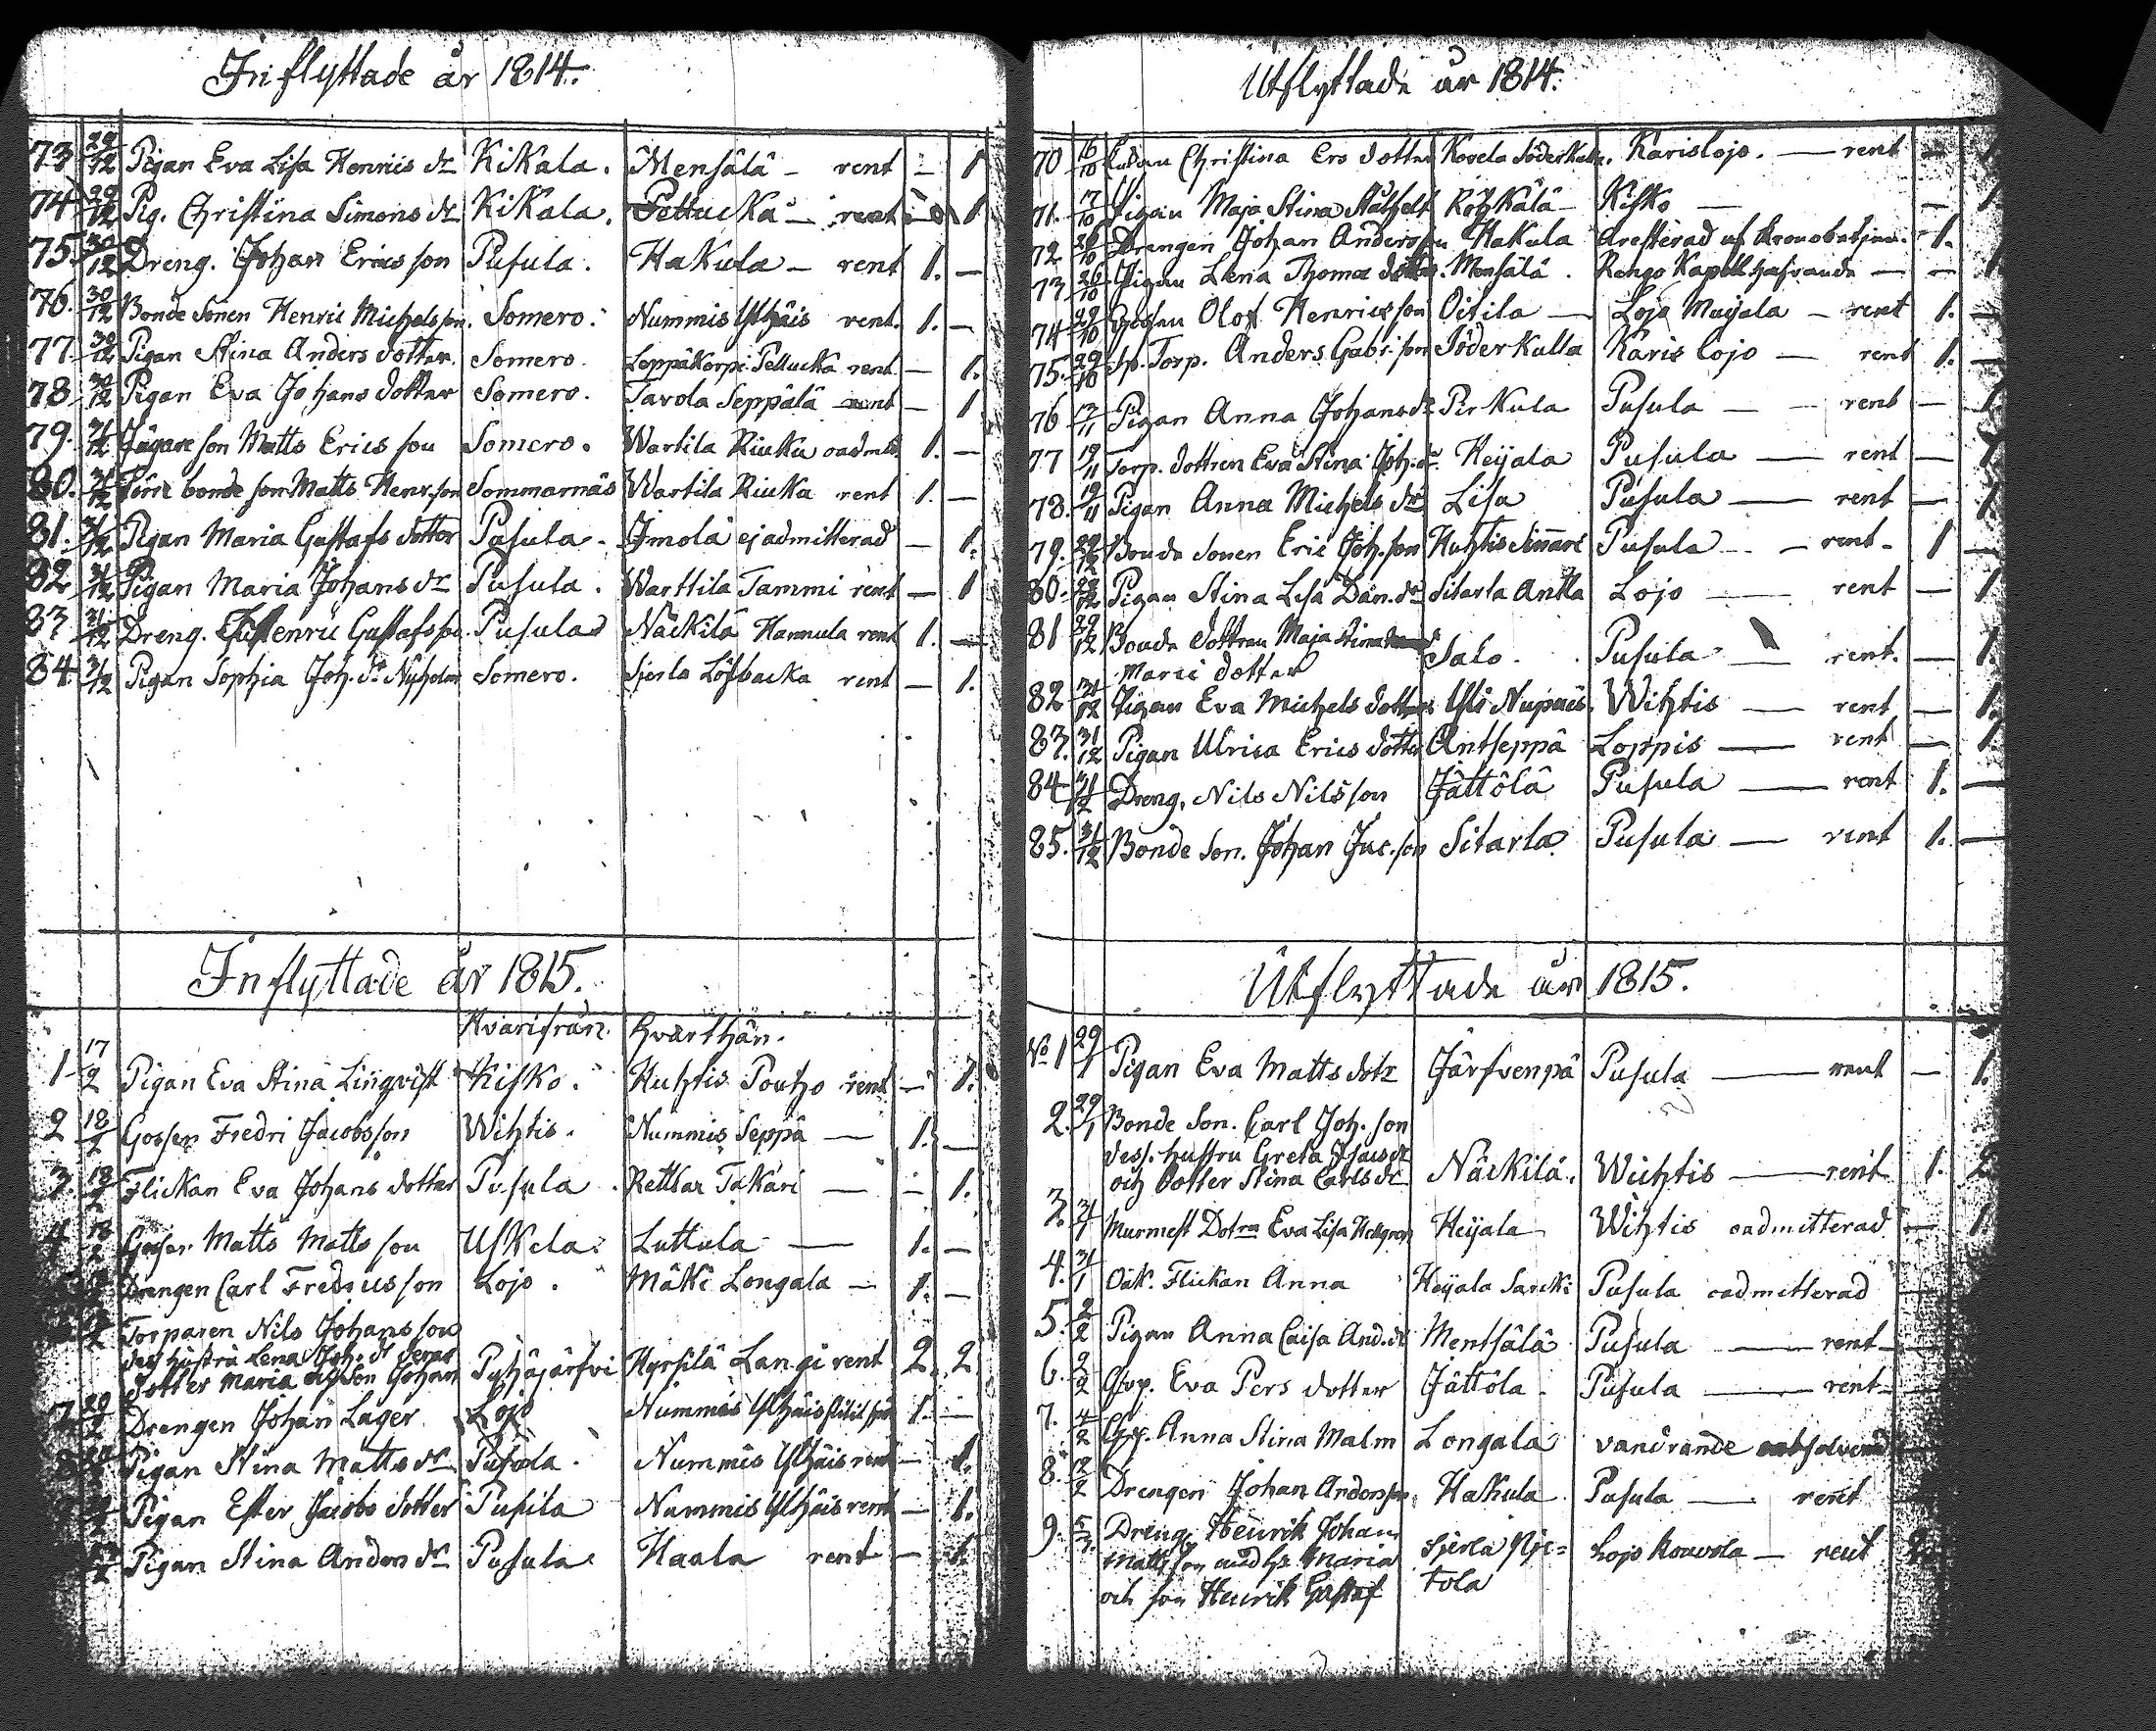 Inflyttade år 1814.
73 29/12 Pigan Eva Lisa Henrics dr Kikala. Mensälä - rent - 1
74 29/12 Pig. Christina Simons dr Kikala. Pettucka - rent - 1
75. 30/12 Dreng. Johan Ericsson Pusula. Hakula - rent 1. -
76. 30/12 Bonde Sonen Henric Michelsson. Somero. Nummis Ylhäis rent. 1. -
77. 30/12 Pigan Stina Anders dotter. Somero. Leppäkorpi Pettucka rent - 1.
78 30/12 Pigan Eva Johans dotter Somero. Tavola Seppälä rent - 1
79. 31/12 Jägare son Matts Erics son Somero. Wartila Riuka oadmit. 1. -
80. 31/12 bonde son Matts Henr.son Sommarnäs Wartila Riuka rent 1. -
81. 31/12 Pigan Maria Gustafs dotter Pusula. Imola ej admitterad - 1.
82 31/12 Pigan Maria Johans dr Pusula. Warttila Tammi rent - 1
83. 31/12 Dreng. Henric Gustafsson Pusula Näckilä Hannula rent 1. -
84 31/12 Pigan Sophia Joh. dr Nyholm Somero. Sierla Löfbacka rent - 1.
Inflyttade år 1815.
Hvarifrån. Hvarthän.
1 17/2 Pigan Eva Stina Lingvist Kisko. Huhtis Poutzo rent - 1.
2 18/2 Gossen Fredri Jacobsson Wihtis. Nummis Seppä - 1. -
3. 18/2 Flickan Eva Johans dotter Pusula. Rettlar Takari - - 1.
4 18/2 Gossen Matts Matts son Uskela. Luttula - 1. -
Drengen Carl Fredricsson Lojo. Mäki Longala - 1. -
Torparen Nils Johansson
dess hustru Lena Joh. dr deras
dotter Maria och son Johan Pyhäjärfvi Hyrsilä Langi rent 2. 2
7 20/2 Drengen Johan Lager Lojo Nummis Ylhäis 1. -
8 Pigan Stina Matts dr Pusula. Nummis Ylhäis rent - 1.
Pigan Ester Jacobs dotter Pusula Nummis Ylhäis rent - 1.
Pigan Stina Anders dr Pusula Haala rent - 1.
Utflyttade år 1814.
70 16/10 Christina Ers dotter Kovela Söderkulla. Karislojo. - rent -
71. 17/10 Pigan Maja Stina Kisko - -
72 26/10 Drengen Johan Andersson Hakula Aresterad af 1.
73 26/10 Pigan Lena Thomas dotter. Mensälä. Rengo Kapell - -
74 29/10 Gossen Olof Henricsson Oitila - Lojo Maijala - rent 1. -
75. 29/10 Torp. Anders Gabr. son Söderkulla Karislojo - rent 1. -
76 17/11 Pigan Anna Johans dr Pirkula Pusula - rent - 1
77 19/11 Torp. dottren Eva Stina Joh. dr. Heijala Pusula - rent - 1
78. 19/11 Pigan Anna Michels dr Lisa Pusula - rent - 1
79. 29/12 Bonde Sonen Eric Joh. son Huhtis Pusula - rent - 1 -
80. 29/12 Pigan Stina Lisa Dan. dr Sitarla Antla Lojo - rent - 1
81 29/12 Bonde dottren Maja Stina
Marci dotter Salo. Pusula - rent. - 1.
82 31/12 Pigan Eva Michels dotter Yli Nupais. Wihtis - rent - 1.
83. 31/12 Pigan Ulrica Erics dotter Antseppä Loppis - rent - 1
84 31/12 Dreng. Nils Nilsson Jättölä Pusula - rent 1. -
85. 31/12 Bonde Son. Johan Jac. son Sitarla Pusula - rent 1. -
Utflyttade år 1815.
No 1 29/1 Pigan Eva Matts dotr Järfvenpä Pusula - rent - 1.
2. 29/1 Bonde Son. Carl Joh. son
dess hustru Greta Isacs dr
och Dotter Stina Carls dr Näckilä. Wichtis - rent 1. 2
3. 31/1 Murmest Dotra Eva Lisa Hellgren Heijala Wihtis oadmitterad - 1.
4. 31/1 Oäk. Flickan Anna Heijala Sarcki Pusula oadmitterad
5. 2/2 Pigan Anna Caisa And. dr Mentsälä Pusula - rent -
6. 2/2 Eva Pers dotter Jättöla - Pusula - rent -
7. 4/2 Anna Stina Malm Longala vandrande
8. 12/2 Drengen Johan Andersson Hakula Pusula - rent
9. Dreng. Henrik Johan
Mattsson med hr Maria Sjerla Nje= Lojo Kouvola - rent
och son Henrik Gustaf tola